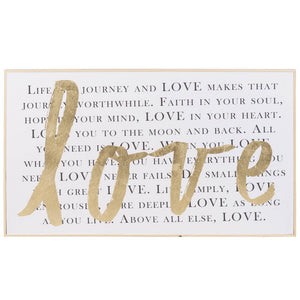 Life is a journey and LOVE makes that
journey worthwhile. Faith in your soul,
hope in your mind, LOVE in your heart.
LOVE you to the moon and back. All
you need is LOVE. When you LOVE
what you have you have everything you
need. LOVE never fails. Do small things
with great LOVE. Live simply, LOVE
generously, care deeply. LOVE as long
as you live. Above all else, LOVE.
love